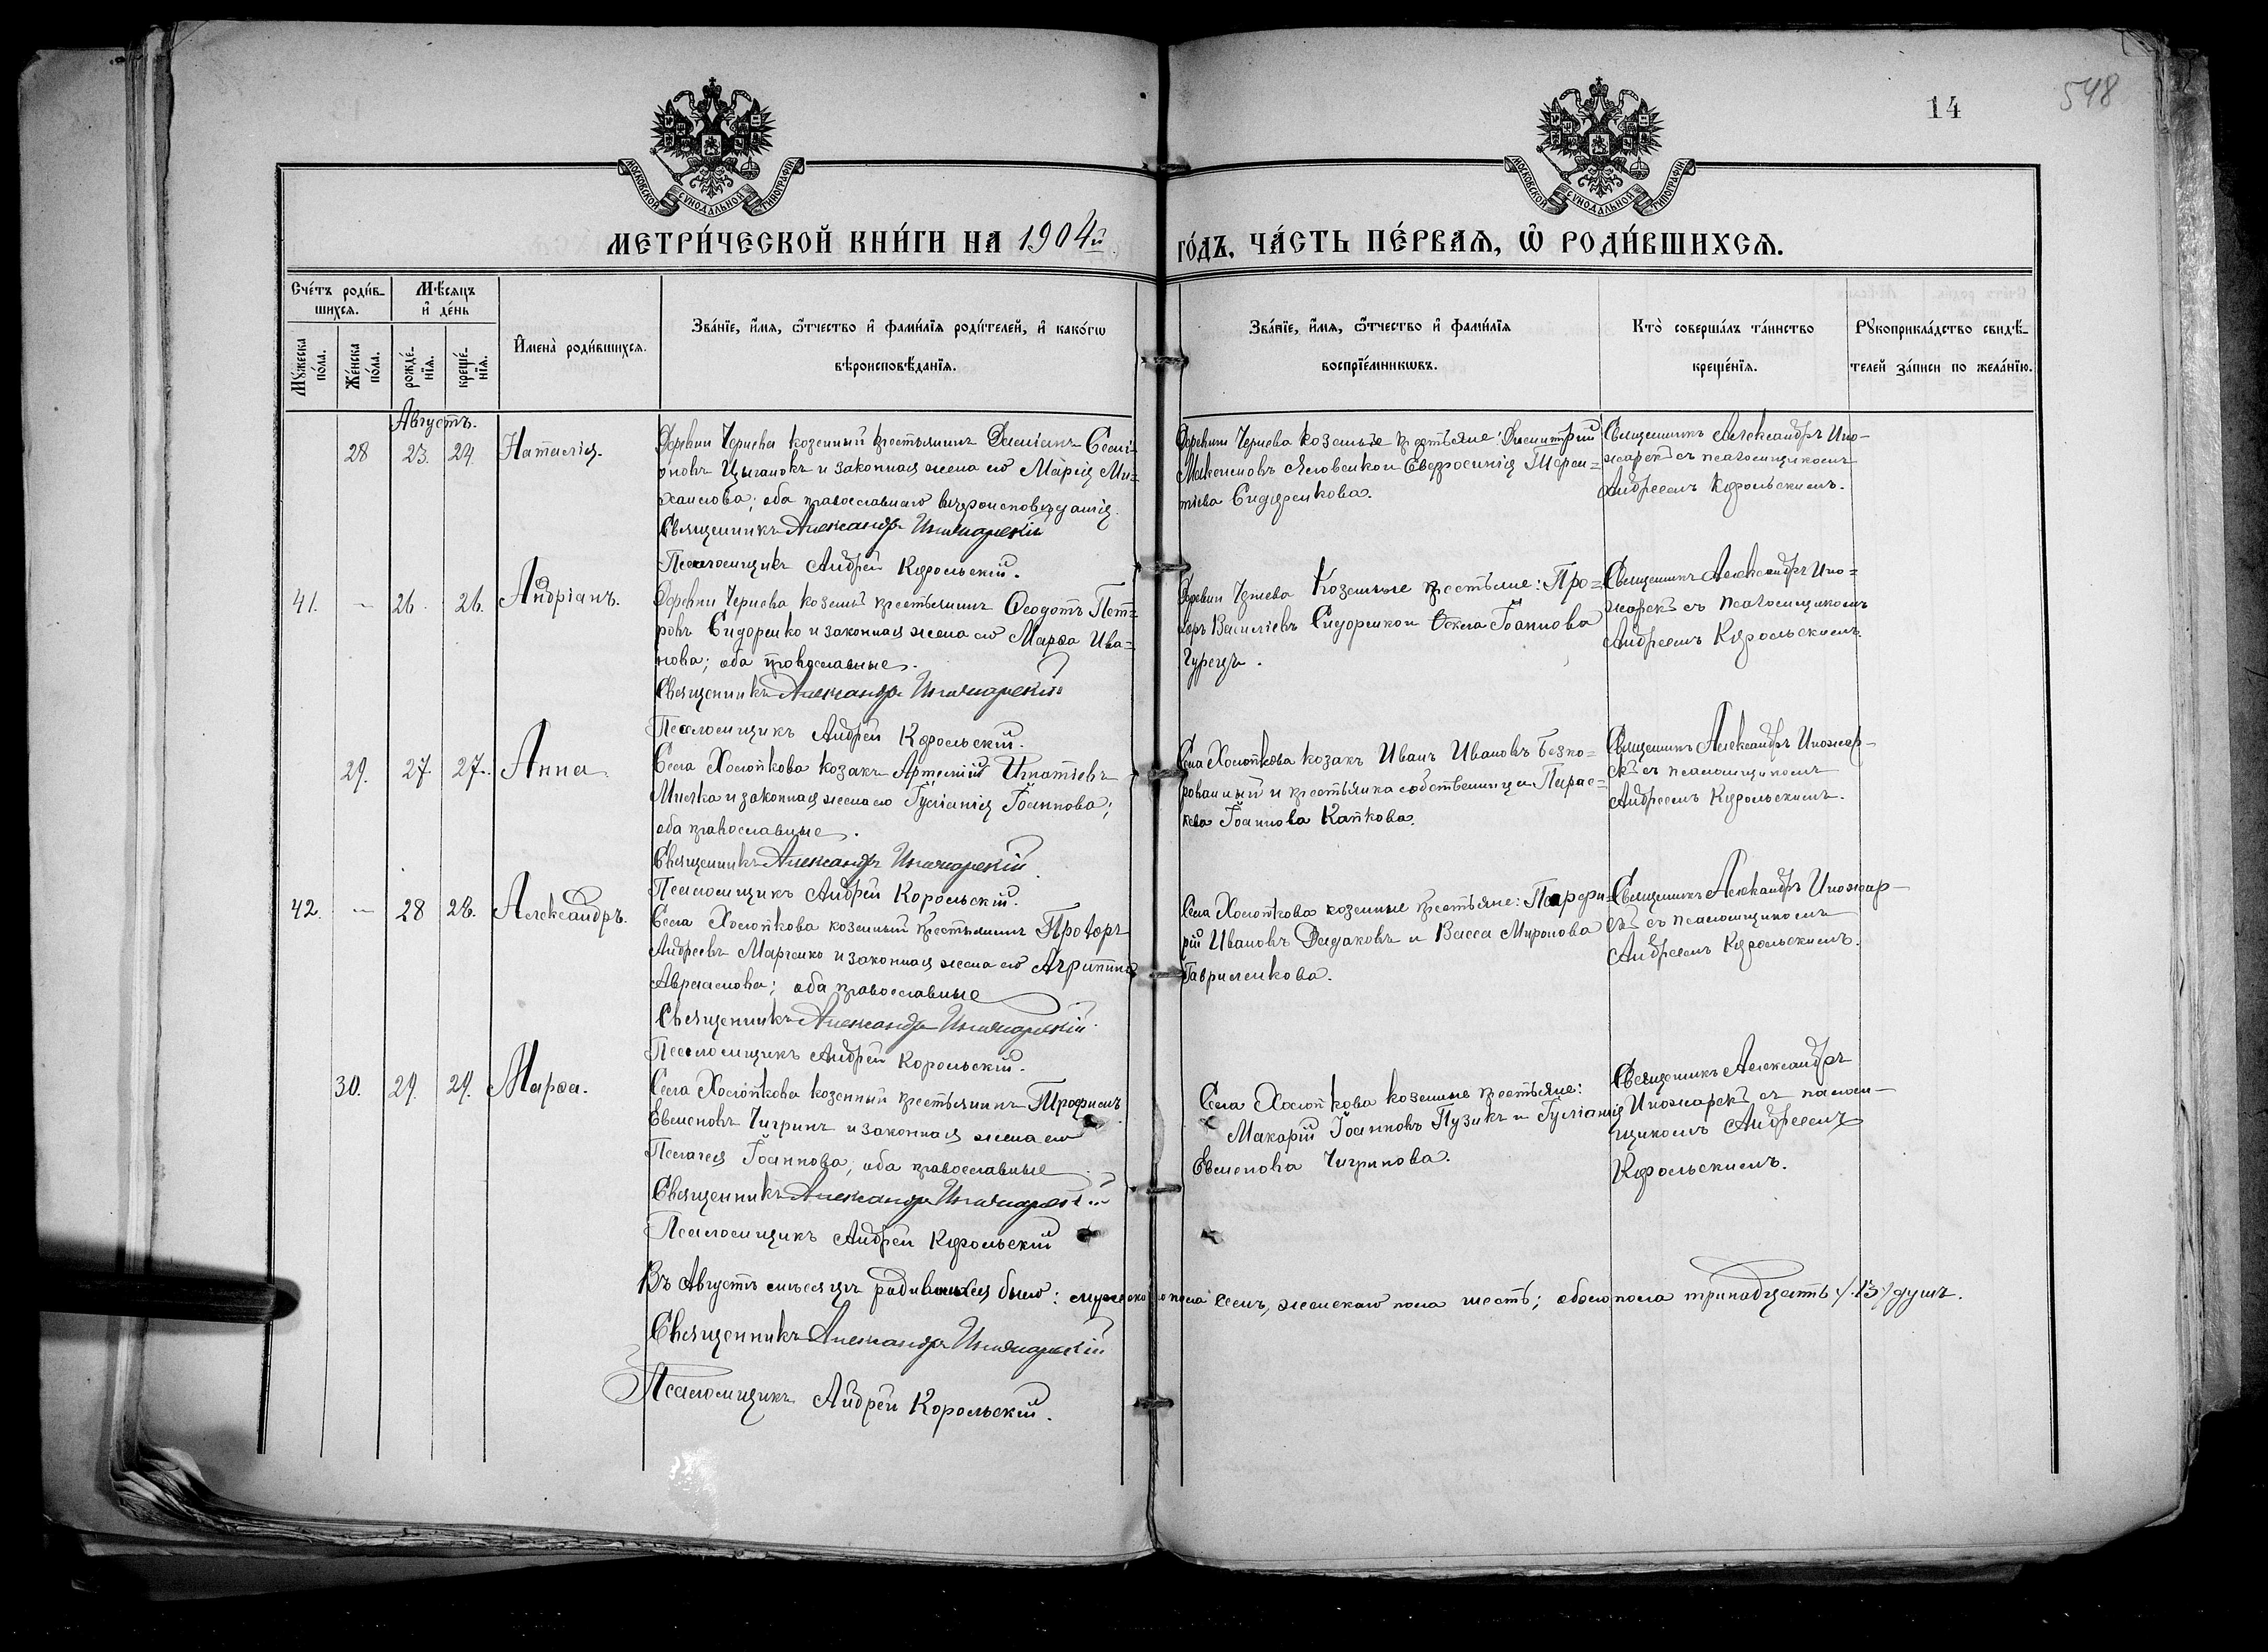 548
14
МОСКОВСКОЙ СѴНОДАЛЬНОЙ ТИПОГРАФІИ
МОСКОВСКОЙ СѴНОДАЛЬНОЙ ТИПОГРАФІИ
МЕТРИ́ЧЕСКОЙ КНИ́ГИ НА 1904й го́дъ, ЧА́СТЬ ПЕ́РВАЯ, Ѡ РОДИ́ВШИХСЯ.
Сче́тъ роди́в-
шихся.
Мѣ́сяцъ
и҆ де́нь
Мꙋжеска
по́ла.
Же́нска
по́ла.
рожде́-
нїя.
креще́-
нїя.
И҆мена̀ роди́вшихся.
Зва́нїе, и҆́мя, ѻ҆́тчество и҆ фамі́лїя роди́телей, и҆ како́гѡ
вѣроисповѣ́данїя.
Зва́нїе, и҆́мя, ѻ҆́тчество и҆ фамі́лїя
воспрїе́мникѡвъ.
Кто̀ соверша́лъ та́инство
креще́нїя.
Рꙋкоприкла́дство свидѣ́-
телей за́писи по жела́нїю.
Августъ.
28 23. 24. Наталія.
Деревни Чернева козенный крестьянинъ Даміанъ Семі-
оновъ Цыганокъ и законная жена его Марія Ми-
хаилова; оба православнаго вѣроисповѣданія.
Священникъ Александръ
Псаломщикъ Андрей Корольскій.
Деревни Чернева козеные крестьяне: Димитрій
Евфросинія Терен-
тіева Сидоренкова.
Священникъ Александръ
съ псаломщикомъ
Андреемъ Корольскимъ.
41. — 26. 26. Андріанъ.
Деревни Чернева козеный крестьянинъ Ѳеодотъ Пет-
ровъ Сидоренко и законная жена его Марѳа Ива-
нова; оба православные.
Священникъ Александръ
Псаломщикъ Андрей Корольскій.
Деревни Чернева козенные крестьяне: Про-
хоръ Василіевъ Сидоренко и Іоаннова
Гурецъ.
Священникъ Александръ
съ псаломщикомъ
Андреемъ Корольскимъ.
29. 27. 27. Анна.
Села Холопкова козакъ Артемій Игнатіевъ
и законная жена его Іуліанія Іоаннова;
оба православные.
Священникъ Александръ
Псаломщикъ Андрей Корольскій.
Села Холопкова козакъ Иванъ Ивановъ Безко-
рованный и крестьянка собственница Парас-
кева Іоаннова Каткова.
Священникъ Александръ
съ псаломщикомъ
Андреемъ Корольскимъ.
42. — 28 28. Александръ.
Села Холопкова козенный крестьянинъ Прохоръ
Андреевъ Марченко и законная жена его Агрипина
Авраамова; оба православные
Священникъ Александръ
Псаломщикъ Андрей Корольскій.
Села Холопкова козенные крестьяне: Порфи-
рій Ивановъ и Васса Миронова
Гавриленкова.
Священникъ Александръ
съ псаломщикомъ
Андреемъ Корольскимъ.
30. 29. 29. Марѳа.
Села Холопкова козенный крестьянинъ Трофимъ
Евменовъ Чигринъ и законная жена его
Пелагея Іоаннова, оба православные
Священникъ Александръ
Псаломщикъ Андрей Корольскій
Села Холопкова козенные крестьяне:
Макарій Іоанновъ Пузикъ и Іуліанія
Евменова Чигринова.
Священникъ Александръ
съ псалом-
щикомъ Андреемъ
Корольскимъ.
Въ Августѣ мѣсяцѣ родившихся было: мужеского пола семь, женскаго пола шесть; обоего пола тринадцать /13/ душъ.
Священникъ Александръ
Псаломщикъ Андрей Корольскій.